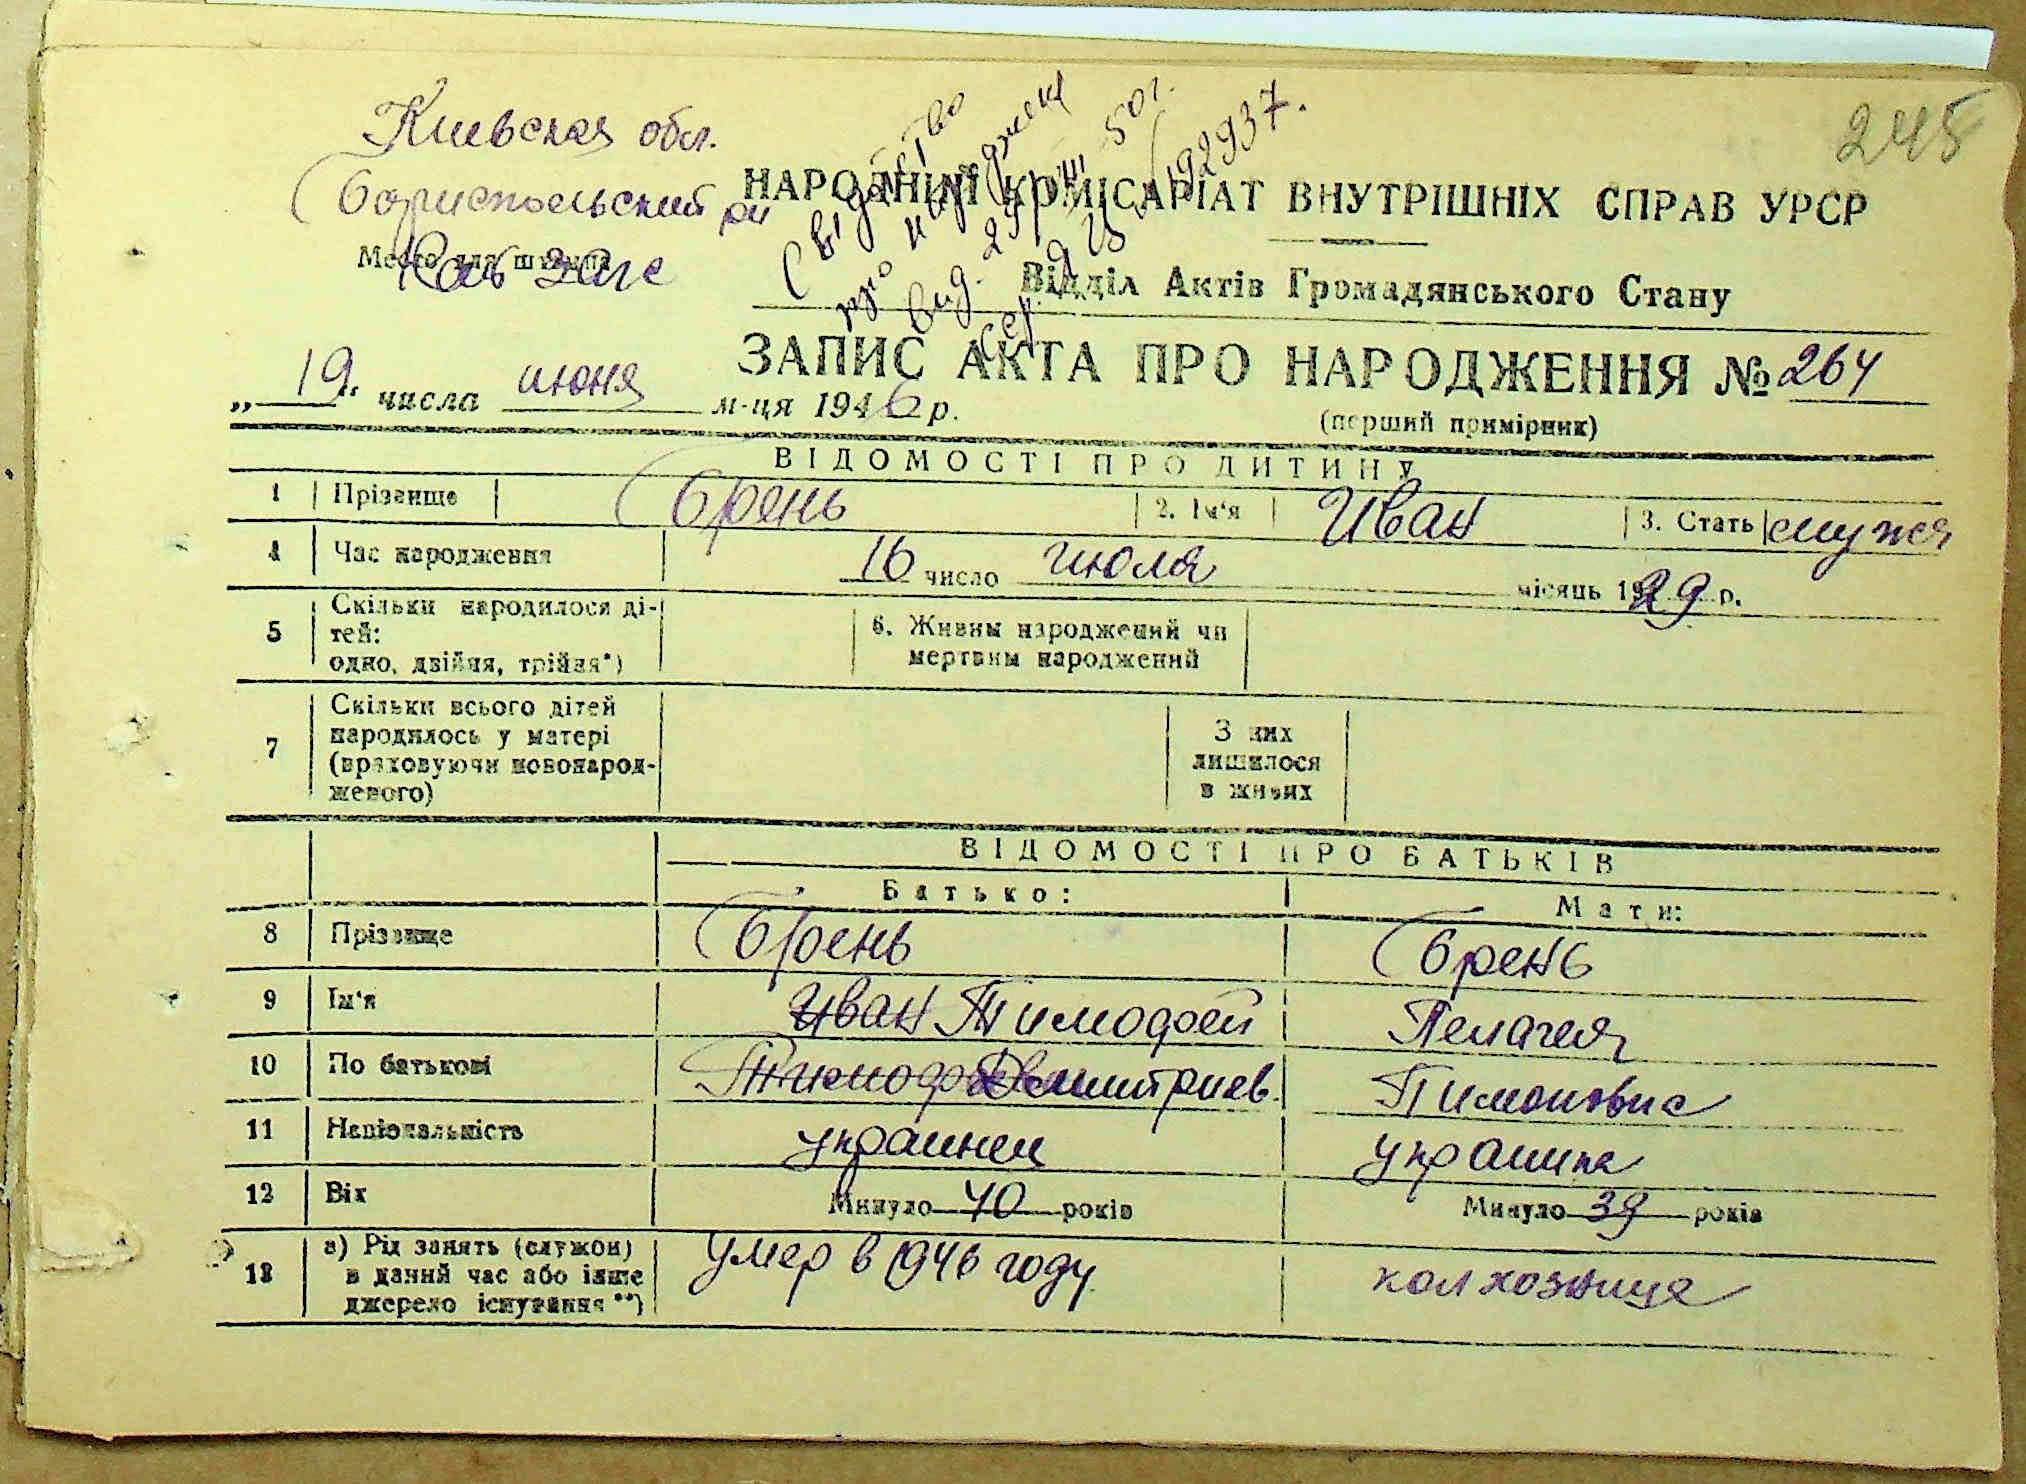 245
Киевская обл.
Бориспольский рн
Место для штампа
ЗАГС
Свідоцтво
про народжен
вид. 29 50 г.
сер. 192937.
НАРОДНИЙ КОМІСАРІАТ ВНУТРІШНІХ СПРАВ УРСР
Відділ Актів Громадянського Стану
ЗАПИС АКТА ПРО НАРОДЖЕННЯ № 264
„19“ числа июня м-ця 1946 р.
(перший примірник)
ВІДОМОСТІ ПРО ДИТИНУ
1 Прізвище Брень 2. Ім‘я Иван 3. Стать муж
4 Час народження 16 число июля місяць 1929 р.
5 Скільки народилося ді-
тей:
одно, двійня, трійня*)
6. Живим народжений чи
мертвим народжений
7 Скільки всього дітей
народилось у матері
(враховуючи новонарод-
женого)
З них
лишилося
в живих
ВІДОМОСТІ ПРО БАТЬКІВ
Батько: Мати:
8 Прізвище Брень Брень
9 Ім‘я Иван Тимофей Пелагея
10 По батькові Тимоф Дмитриев. Пимоновна
11 Національність украинец украинка
12 Вік Минуло 40 років Минуло 39 років
13 а) Рід занять (служби) умер в 1946 году колхозница
в даний час або інше
джерело існування **)